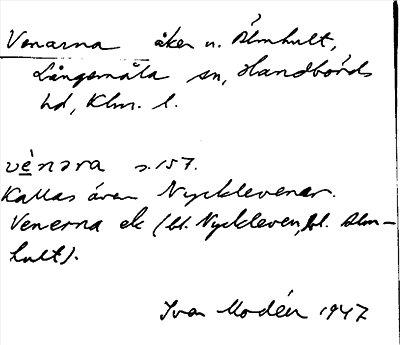 Venarna åker u. Älmhult,
Långemåla sn, Handbörds
hd, Klm. l.
vè̱nəra s. 157.
Kallas även Nycklevener.
Venerna ek (bl. Nyckleven, bl. Alm-
hult).
Ivar Modéer 1947